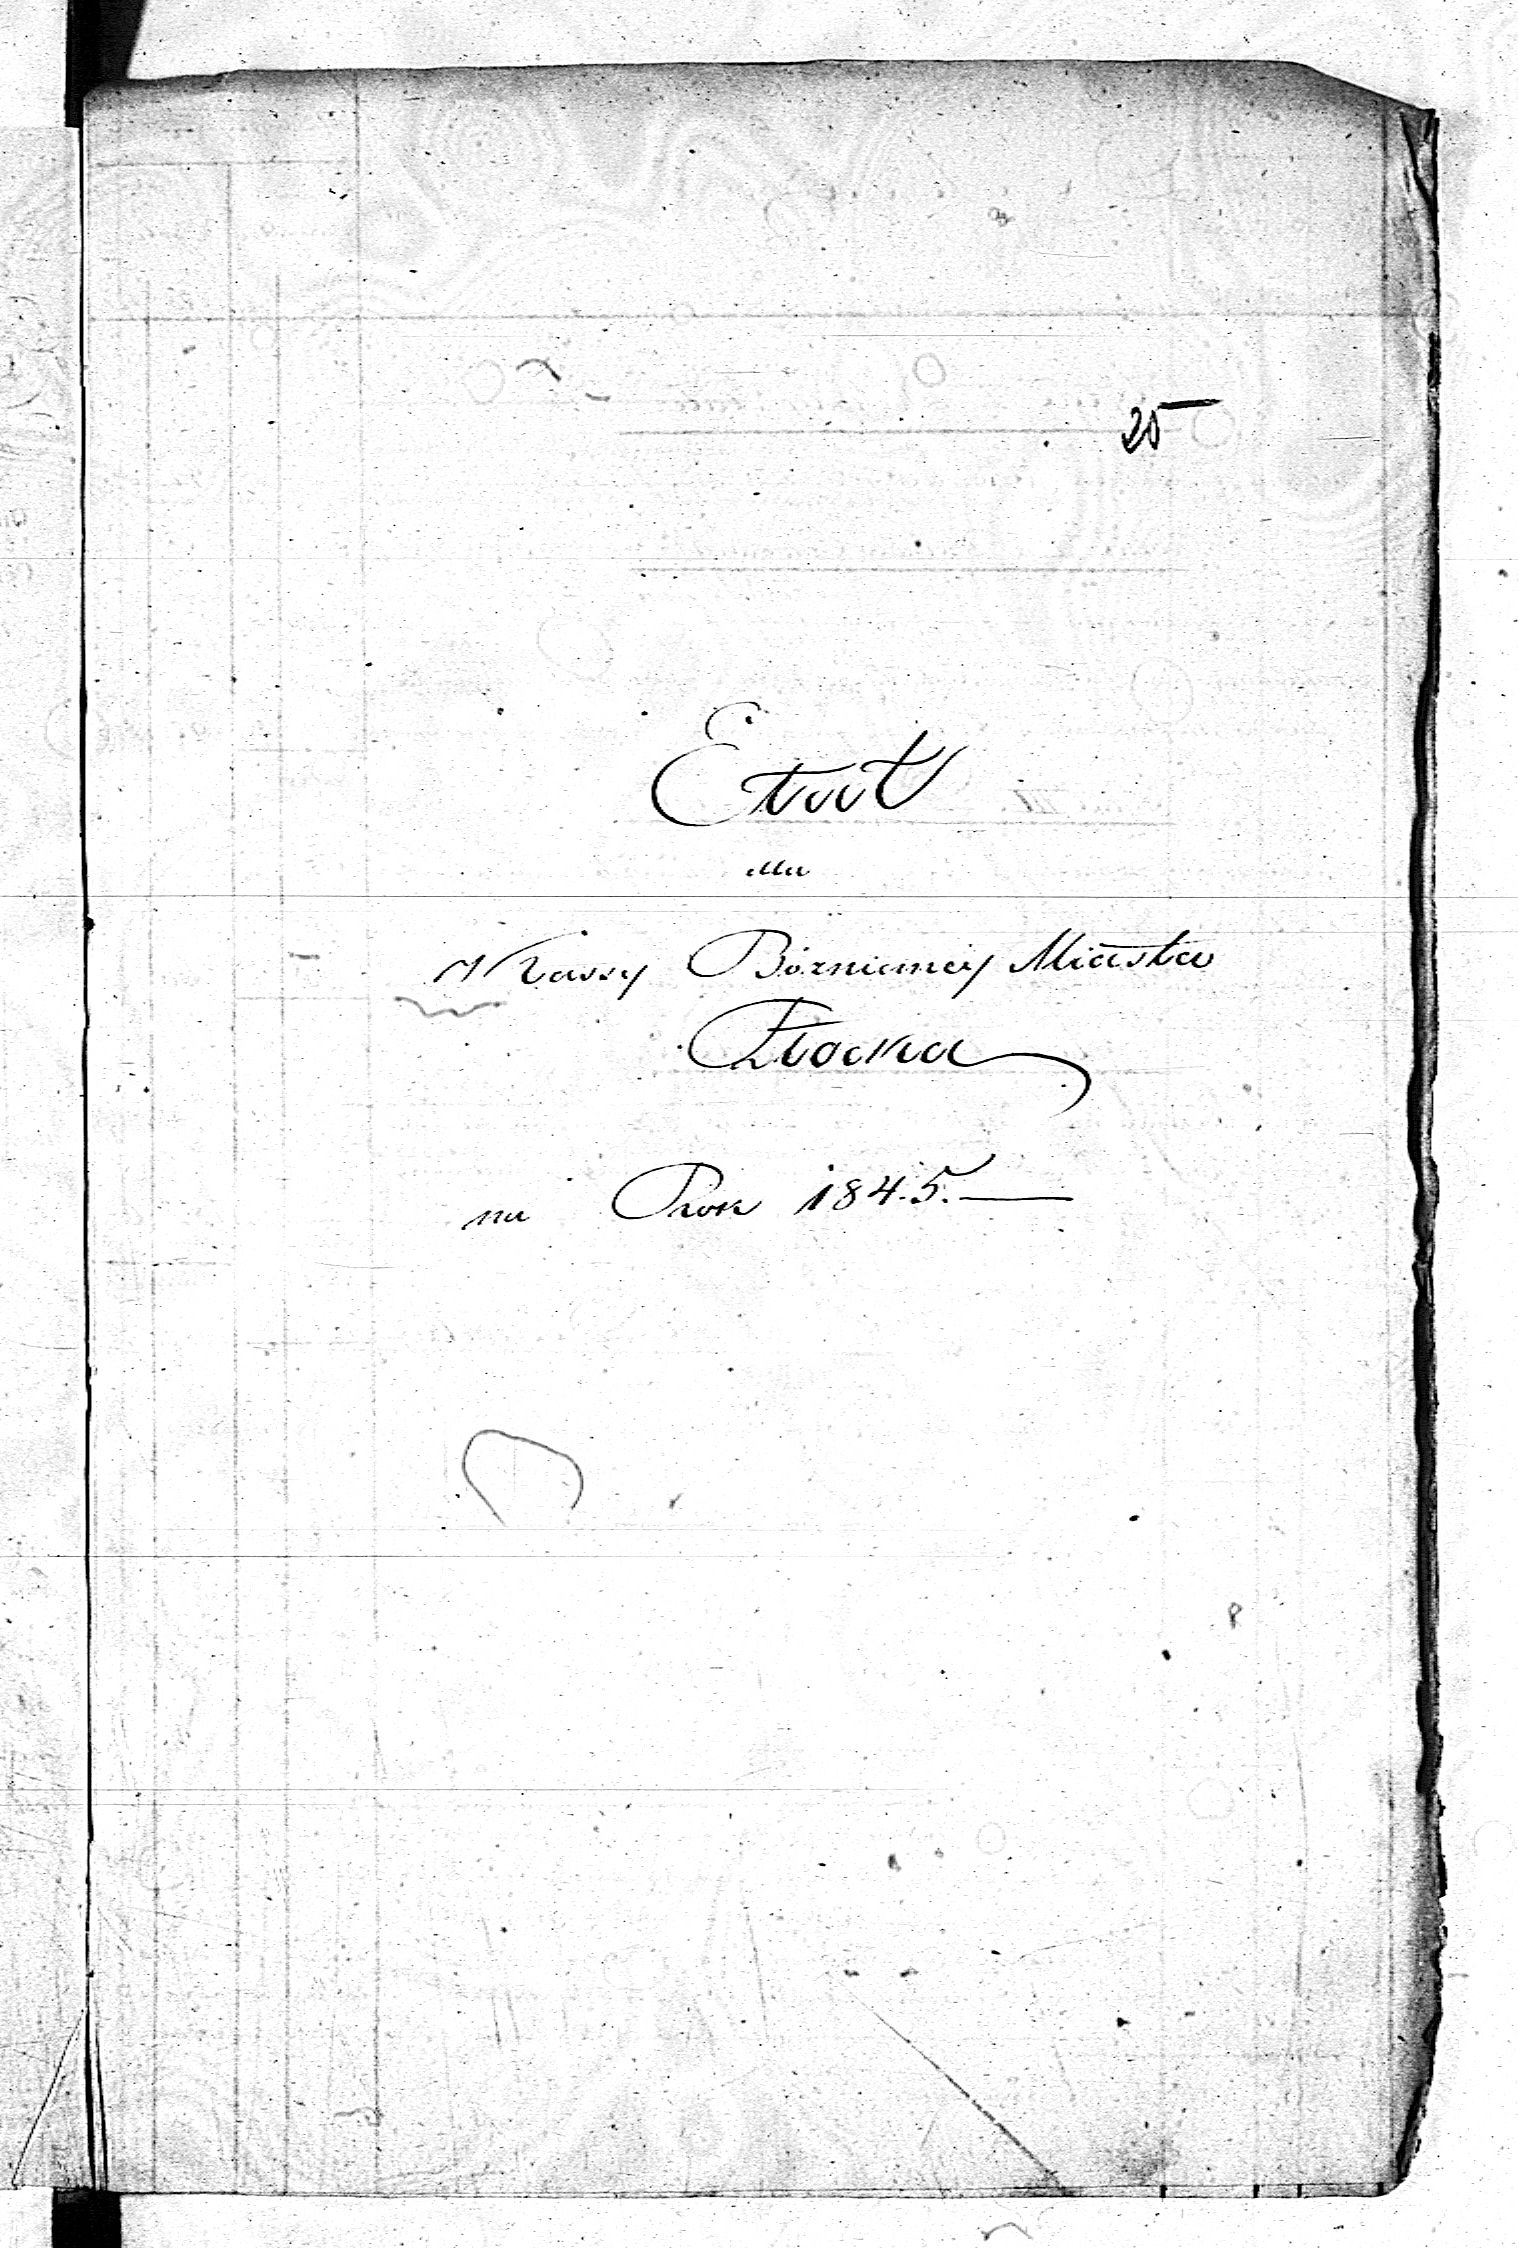 25
Etat
dla
Kassy Bóżniczney Miasta
Płocka
na Rok 1845.